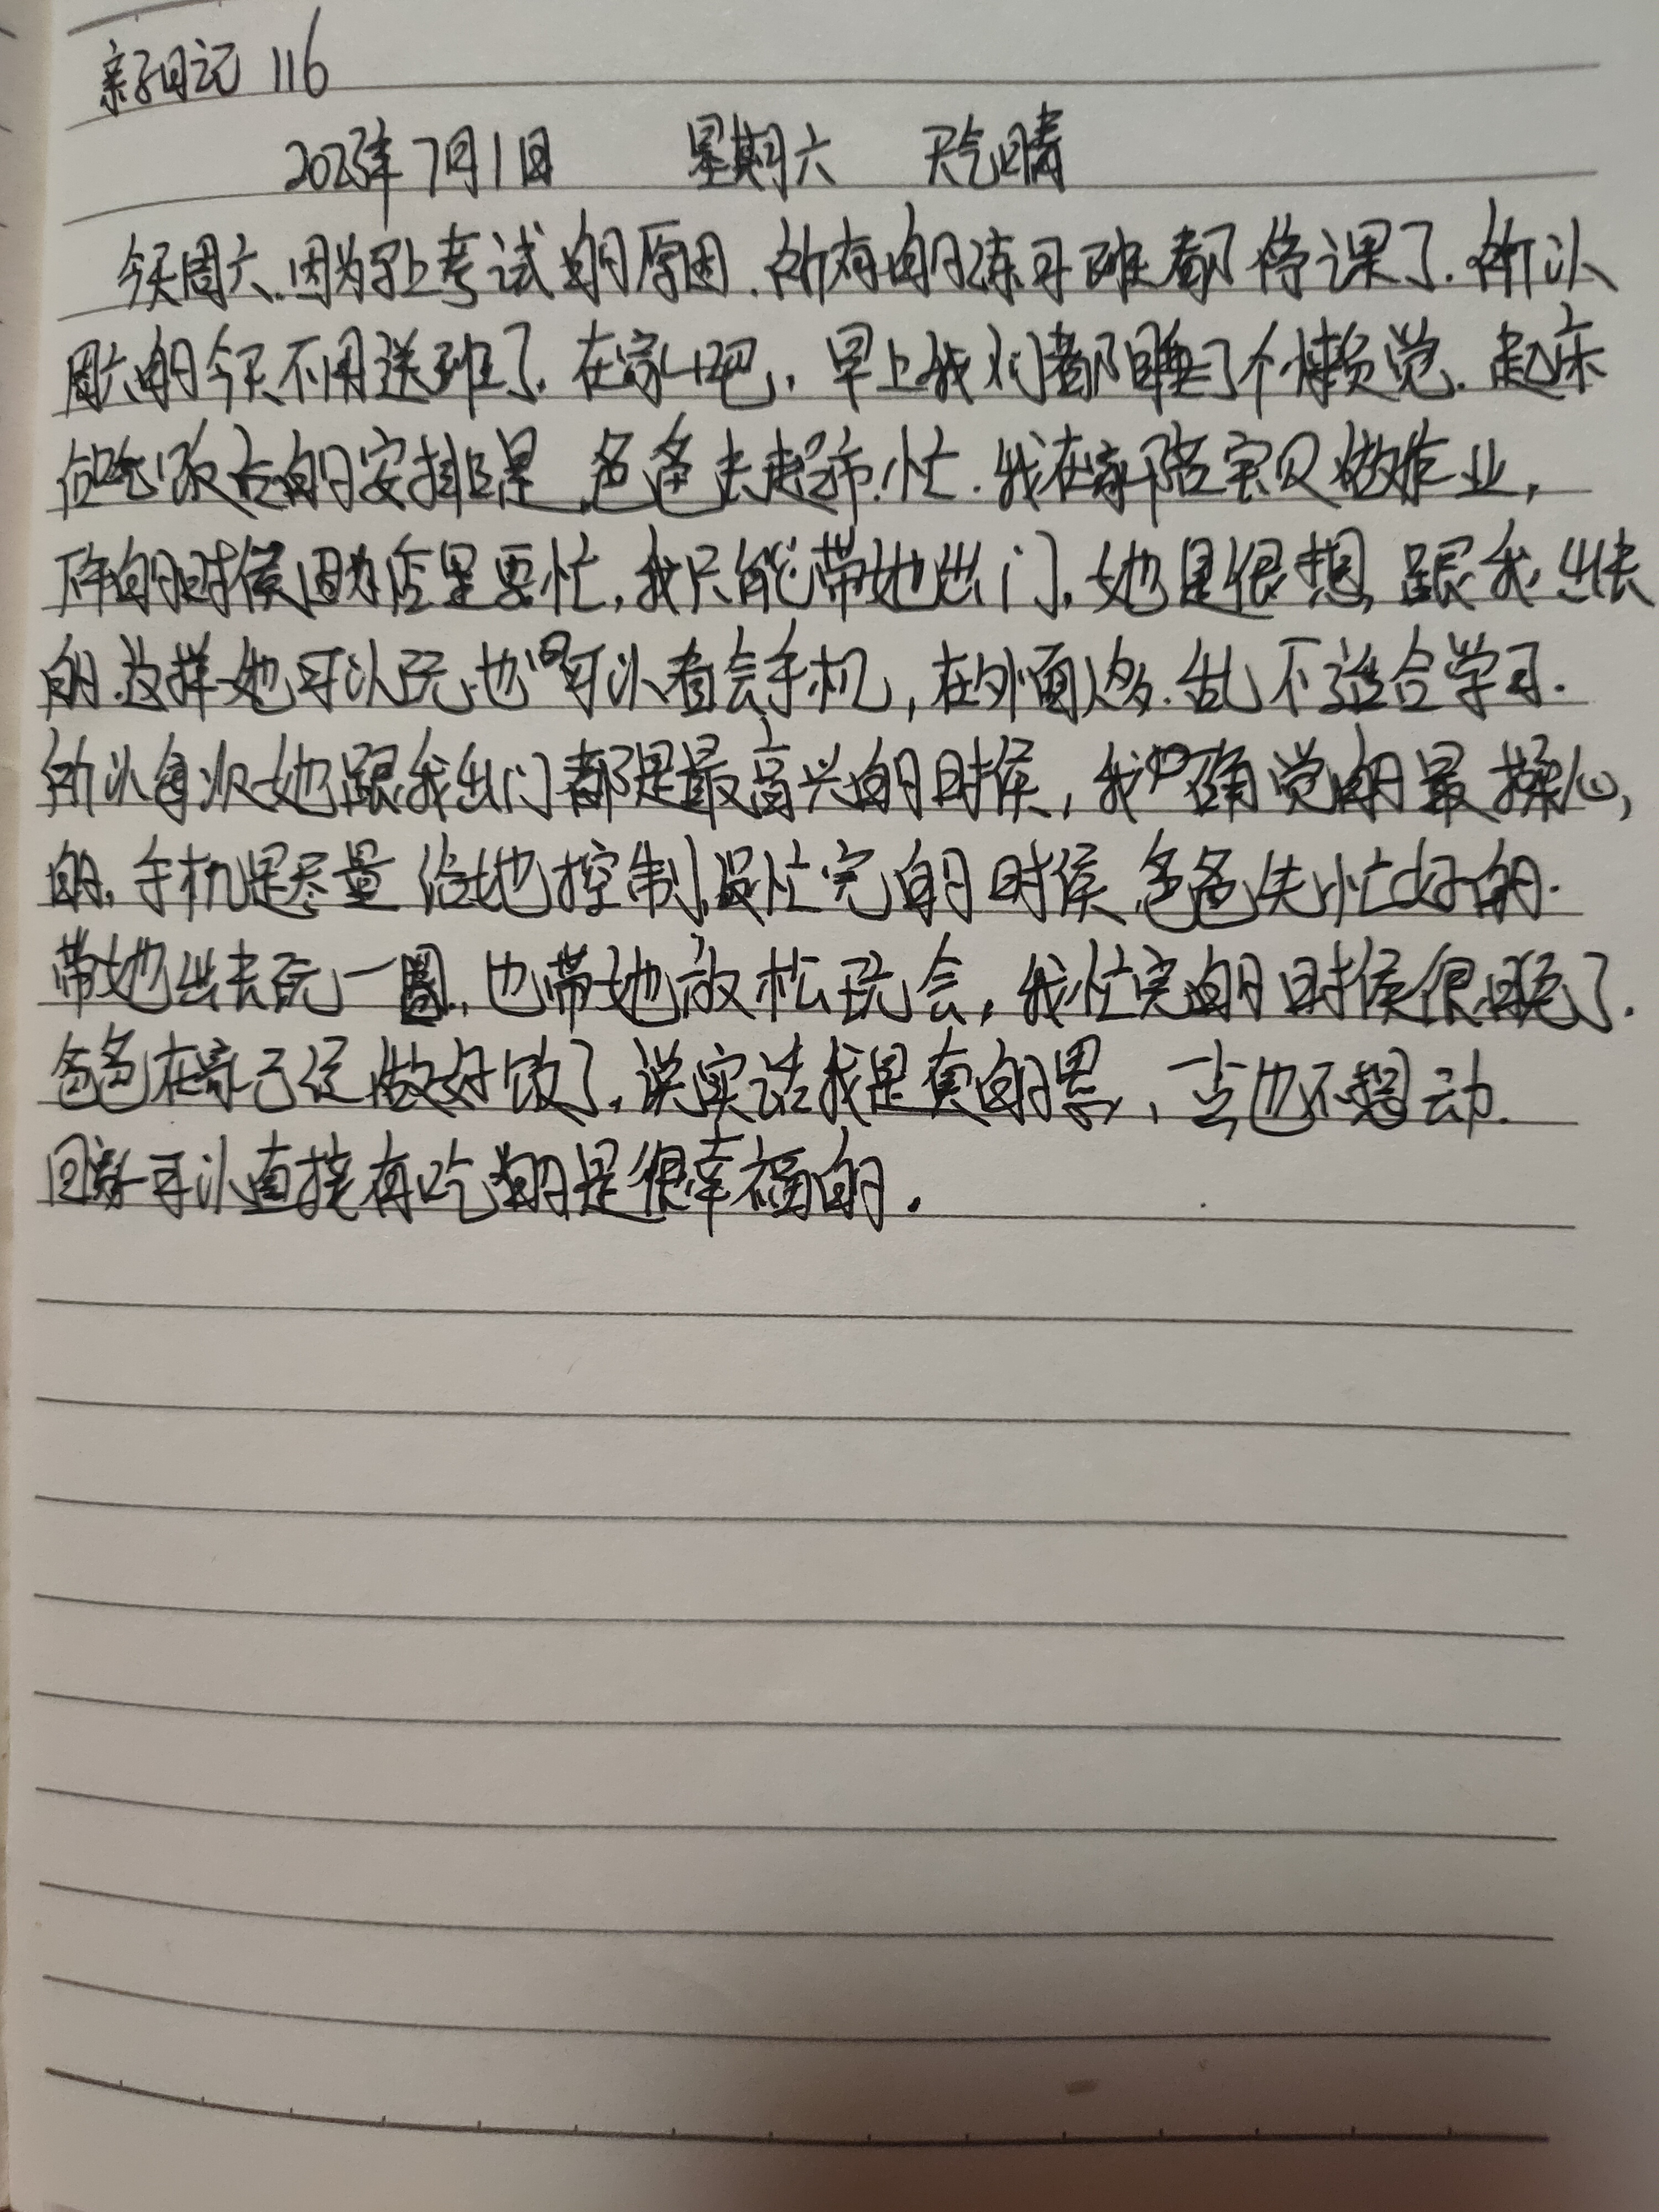 亲子日记 116
2023年7月1日 星期六 天气晴
今天周六.因为早上考试的原因.所有的练习班都停课了.所以
周六的今天不用送班了.在家吧,早上我们都睡了个懒觉.起床
吃饭后的安排是,爸爸去超市忙.我在家陪宝贝做作业,
下午的时候因为店里要忙,我只能带她出门.她是很想,跟我出去
的.这样她可以玩.也可以看会手机,在外面人多.乱不适合学习.
所以每次她跟我出门都是最高兴的时候,我确觉的最操心,
的.手机是尽量给她控制,没忙完的时候,爸爸先忙好的.
带她出去玩一圈.也带她放松玩会,我忙完的时候很晚了.
爸爸在家已经做好饭了,说实话我是真的累,一点也不想动.
回家可以直接有吃的是很幸福的.